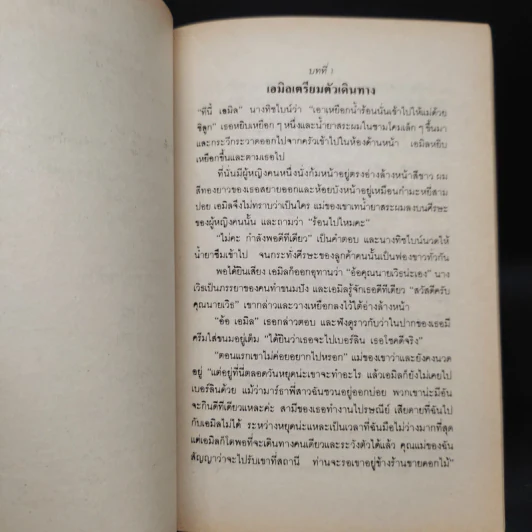 บทที่ 1
เอมิลเตรียมตัวเดินทาง
"ทีนี้ เอมิล" นางทิชไบน์ว่า "เอาเหยือกน้ำร้อนนั่นเข้าไปให้แม่ด้วย
ซิลูก" เธอหยิบเหยือก ๆ หนึ่งและน้ำยาสระผมในชามโคมเล็ก ๆ ขึ้นมา
และกระวีกระวาดออกไปจากครัวเข้าไปในห้องด้านหน้า เอมิลหยิบ
เหยือกขึ้นและตามเธอไป
ที่นั่นมีผู้หญิงคนหนึ่งนั่งก้มหน้าอยู่ตรงอ่างล้างหน้าสีขาว ผม
สีทองยาวของเธอสยายออกและห้อยบังหน้าอยู่เหมือนกำมะหยี่สาม
ปอย เอมิลจึงไม่ทราบว่าเป็นใคร แม่ของเขาเทน้ำยาสระผมลงบนศีรษะ
ของผู้หญิงคนนั้น และถามว่า "ร้อนไปไหมคะ"
"ไม่คะ กำลังพอดีทีเดียว" เป็นคำตอบ และนางทิชไบน์นวดให้
น้ำยาซึมเข้าไป จนกระทั่งศีรษะของลูกค้าคนนั้นเป็นฟองขาวทั่วกัน
พอได้ยินเสียง เอมิลก็ออกอุทานว่า "อ้อคุณนายเวิธน่ะเอง" นาง
เวิธเป็นภรรยาของคนทำขนมปัง และเอมิลรู้จักเธอดีทีเดียว "สวัสดีครับ
คุณนายเวิธ" เขากล่าวและวางเหยือกลงไว้ใต้อ่างล้างหน้า
"อ้อ เอมิล" เธอกล่าวตอบ และฟังดูราวกับว่าในปากของเธอมี
ครีมใส่ขนมอยู่เต็ม "ได้ยินว่าเธอจะไปเบอร์ลิน เธอโชคดีจริง"
"ตอนแรกเขาไม่ค่อยอยากไปหรอก" แม่ของเขาว่าและยังคงนวด
อยู่ "แต่อยู่ที่นี่ตลอดวันหยุดน่ะเขาจะทำอะไร แล้วเอมิลก็ยังไม่เคยไป
เบอร์ลินด้วย แม้ว่ามาร์ธาพี่สาวฉันชวนอยู่ออกบ่อย พวกเขาน่ะมีอัน
จะกินดีทีเดียวแหละค่ะ สามีของเธอทำงานไปรษณีย์ เสียดายที่ฉันไป
กับเอมิลไม่ได้ ระหว่างหยุดน่ะแหละเป็นเวลาที่ฉันมือไม่ว่างมากที่สุด
แต่เอมิลก็โตพอที่จะเดินทางคนเดียวและระวังตัวได้แล้ว คุณแม่ของฉัน
สัญญาว่าจะไปรับเขาที่สถานี ท่านจะรอเขาอยู่ข้างร้านขายดอกไม้"